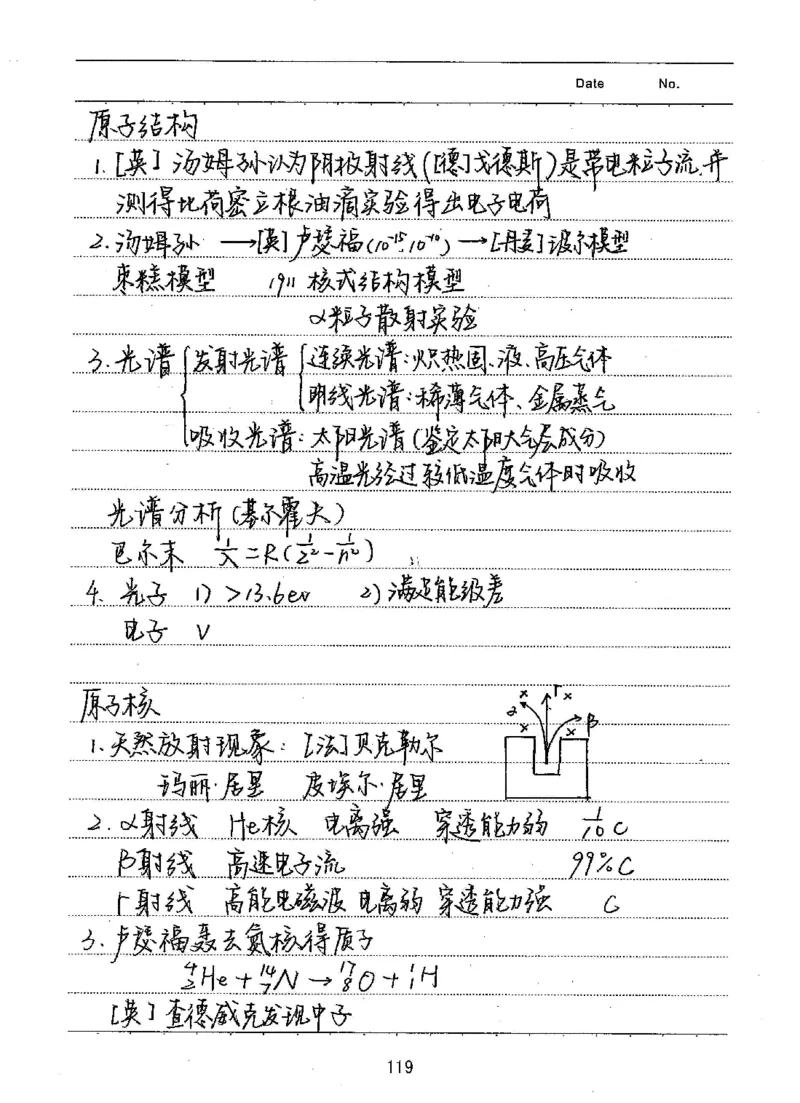 Date No.
原子结构
1.[英]汤姆孙认为阴极射线([德]戈德斯)是带电粒子流,并
测得比荷密立根油滴实验得出电子电荷
2.汤姆孙 →[英]卢瑟福(10⁻¹⁵,10⁻¹⁰)→[丹麦]波尔模型
枣糕模型 1911 核式结构模型
α粒子散射实验
3.光谱 发射光谱 连续光谱:炽热固、液、高压气体
明线光谱:稀薄气体、金属蒸气
吸收光谱:太阳光谱(鉴定太阳大气层成分)
高温光经过较低温度气体时吸收
光谱分析(基尔霍夫)
巴尔末 1/λ=R(1/2²-1/n²)
4.光子 1) >13.6ev 2)满足能级差
电子 V
原子核
α × Γ × β × ×
1.天然放射现象:[法]贝克勒尔
玛丽·居里 皮埃尔·居里
2.α射线 He核 电离强 穿透能力弱 1/10 C
β射线 高速电子流 99%C
Γ射线 高能电磁波 电离弱 穿透能力强 C
3.卢瑟福轰击氮核得质子
⁴₂He+¹⁴₇N→¹⁷₈O+¹₁H
[英]查德威克发现中子
119